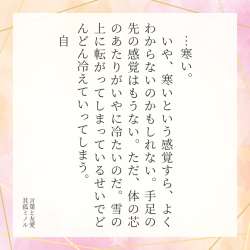 …寒い。
　いや、寒いという感覚すら、よく
わからないのかもしれない。手足の
先の感覚はもうない。ただ、体の芯
のあたりがいやに冷たいのだ。雪の
上に転がってしまっているせいでど
んどん冷えていってしまう。
自